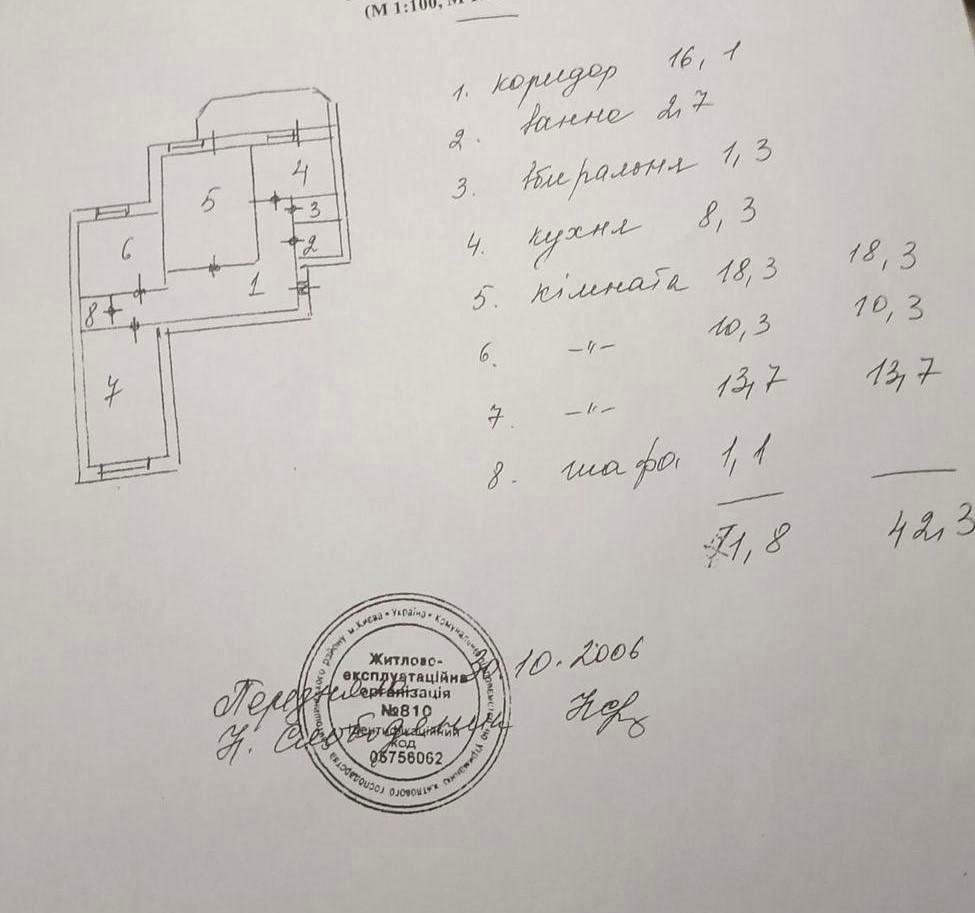 (М 1:100, М
1. коридор 16,1
2. ванна 2,7
3. вбиральня 1,3
4. кухня 8,3
5. кімната 18,3 18,3
6. –"– 10,3 10,3
7. –"– 13,7 13,7
8. шафа 1,1
71,8 42,3
5
4
3
2
6
1
8
7
м.Києва • Україна •
Житлово-
експлуатаційна
організація
№810
Ідентифікаційний
код
05756062
житлового господарства
10.2006